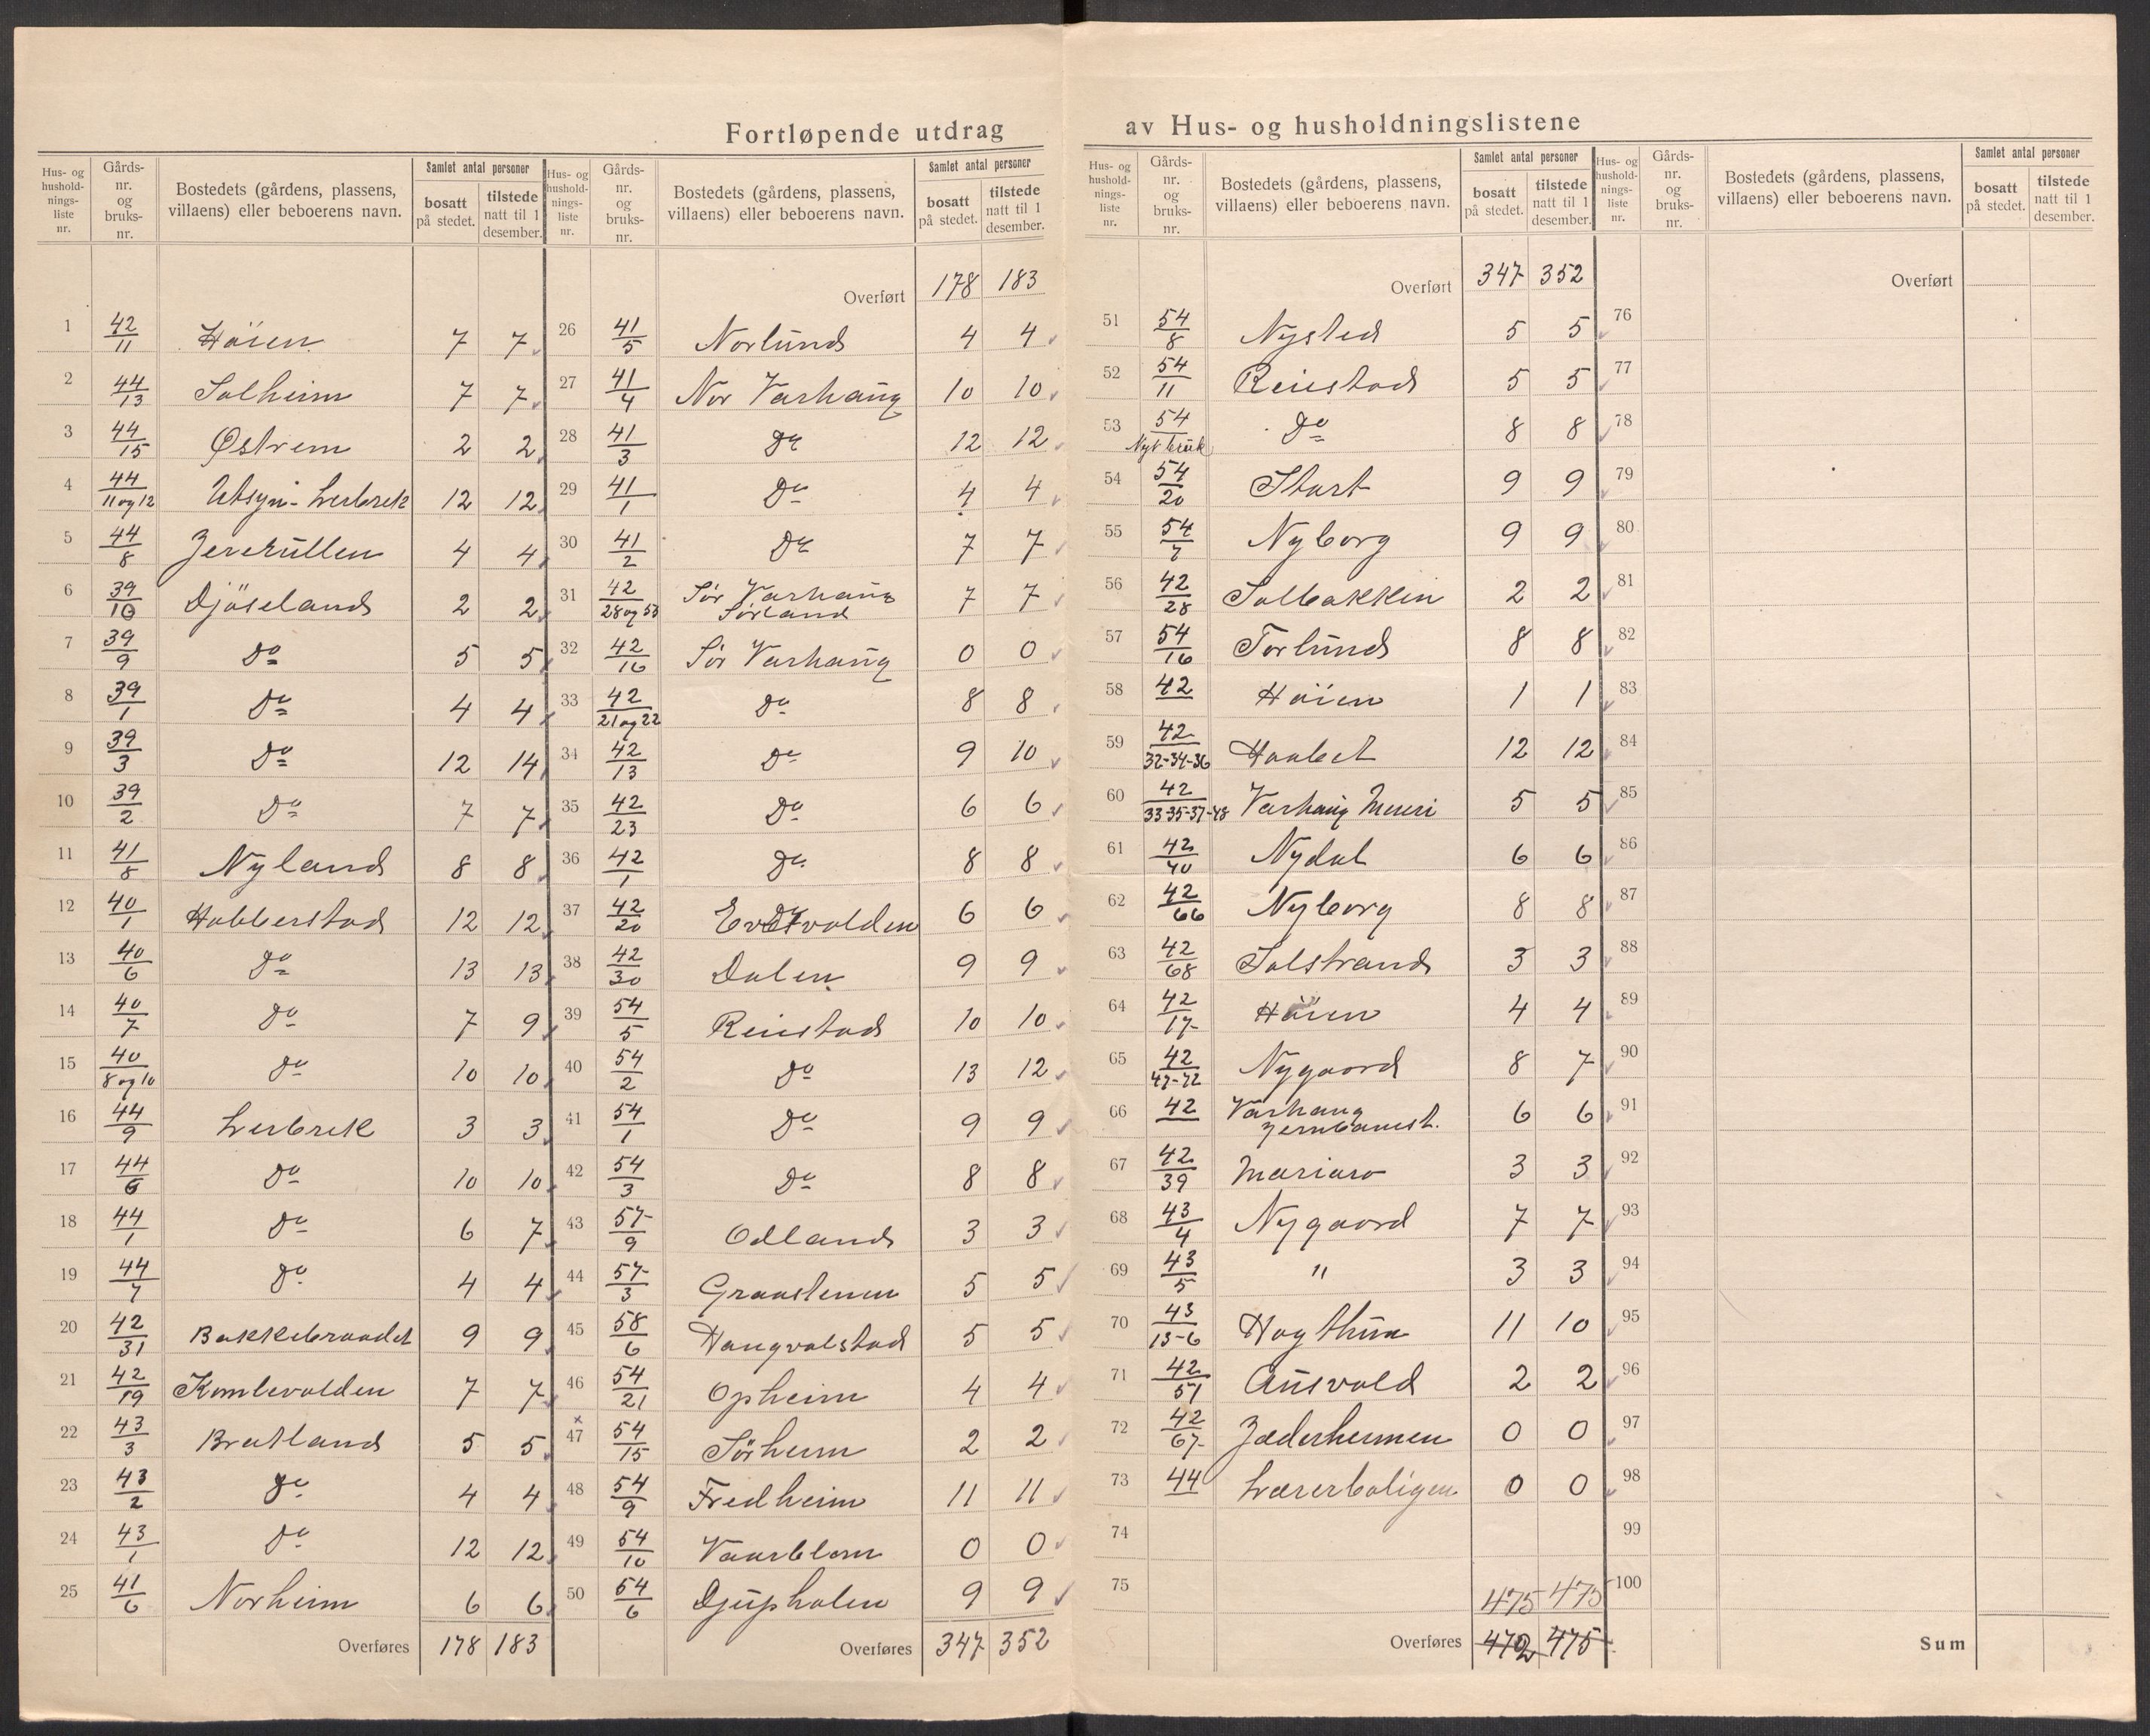 Fortløpende utdrag av Hus- og husholdningslistene
Hus- og husholdnings-liste nr. | Gårds-nr. og bruks-nr. | Bostedets (gårdens, plassens, villaens) eller beboerens navn. | Samlet antal personer bosatt på stedet. | tilstede natt til 1 desember.
1 42/11 Höien 7 7
2 44/13 Solheim 7 7
3 44/15 Østrem 2 2
4 44/11 og 12 Utsyn - Lerbrek 12 12
5 44/8 4 4
6 39/10 Djöseland 2 2
7 39/9 Do 5 5
8 39/1 Do 4 4
9 39/3 Do 12 14
10 39/2 Do 7 7
11 41/8 Nyland 8 8
12 40/1 Hobberstad 12 12
13 40/6 Do 13 13
14 40/7 Do 7 9
15 40/8 og 10 Do 10 10
16 44/9 Lerbrek 3 3
17 44/6 Do 10 10
18 44/1 Do 6 7
19 44/7 Do 4 4
20 42/31 Bakkebraadet 9 9
21 42/19 Komlevolden 7 7
22 43/3 Bratland 5 5
23 43/2 Do 4 4
24 43/1 Do 12 12
25 41/6 Norheim 6 6
Overføres 178 183
Hus- og husholdnings-liste nr. | Gårds-nr. og bruks-nr. | Bostedets (gårdens, plassens, villaens) eller beboerens navn. | Samlet antal personer bosatt på stedet. | tilstede natt til 1 desember.
Overført 178 183
26 41/5 Norlund 4 4
27 41/4 Nor Varhaug 10 10
28 41/3 Do 12 12
29 41/1 Do 4 4
30 41/2 Do 7 7
31 42/28 og 53 Sör Varhaug Sörland 7 7
32 42/16 Sör Varhaug 0 0
33 42/21 og 22 Do 8 8
34 42/13 Do 9 10
35 42/23 Do 6 6
36 42/1 Do 8 8
37 42/20 6 6
38 42/30 Dalen 9 9
39 54/5 Reiestad 10 10
40 54/2 Do 13 12
41 54/1 Do 9 9
42 54/3 Do 8 8
43 57/9 Odland 3 3
44 57/3 Graastenen 5 5
45 58/6 Haugvalstad 5 5
46 54/21 Opheim 4 4
x
47 54/15 Sörheim 2 2
48 54/9 Fredheim 11 11
49 54/10 Vaarblom 0 0
50 54/6 Djuphalen 9 9
Overføres 347 352
Hus- og husholdnings-liste nr. | Gårds-nr. og bruks-nr. | Bostedets (gårdens, plassens, villaens) eller beboerens navn. | Samlet antal personer bosatt på stedet. | tilstede natt til 1 desember.
Overført 347 352
51 54/8 Nysted 5 5
52 54/11 Reiestad 5 5
53 54/Nyt bruk Do 8 8
54 54/20 Start 9 9
55 54/7 Nyborg 9 9
56 42/28 Solbakken 2 2
57 54/16 Torlund 8 8
58 42 Höien 1 1
59 42/32-34-36 Haabet 12 12
60 42/33-35-37-48 Varhaug Meieri 5 5
61 42/40 Nydal 6 6
62 42/66 Nyborg 8 8
63 42/68 Solstrand 3 3
64 42/17 Höien 4 4
65 42/47-72 Nygaard 8 7
66 42 Varhaug Jernbanest. 6 6
67 42/39 Mariaro 3 3
68 43/4 Nygaard 7 7
69 43/5 " 3 3
70 43/13-6 Hogthun 11 10
71 42/51 Ausvold 2 2
72 42/67 Jæderheimen 0 0
73 44 Lærerboligen 0 0
74
75 475 475
Overføres 472 475
Hus- og husholdnings-liste nr. | Gårds-nr. og bruks-nr. | Bostedets (gårdens, plassens, villaens) eller beboerens navn. | Samlet antal personer bosatt på stedet. | tilstede natt til 1 desember.
Overført
76
77
78
79
80
81
82
83
84
85
86
87
88
89
90
91
92
93
94
95
96
97
98
99
100
Sum